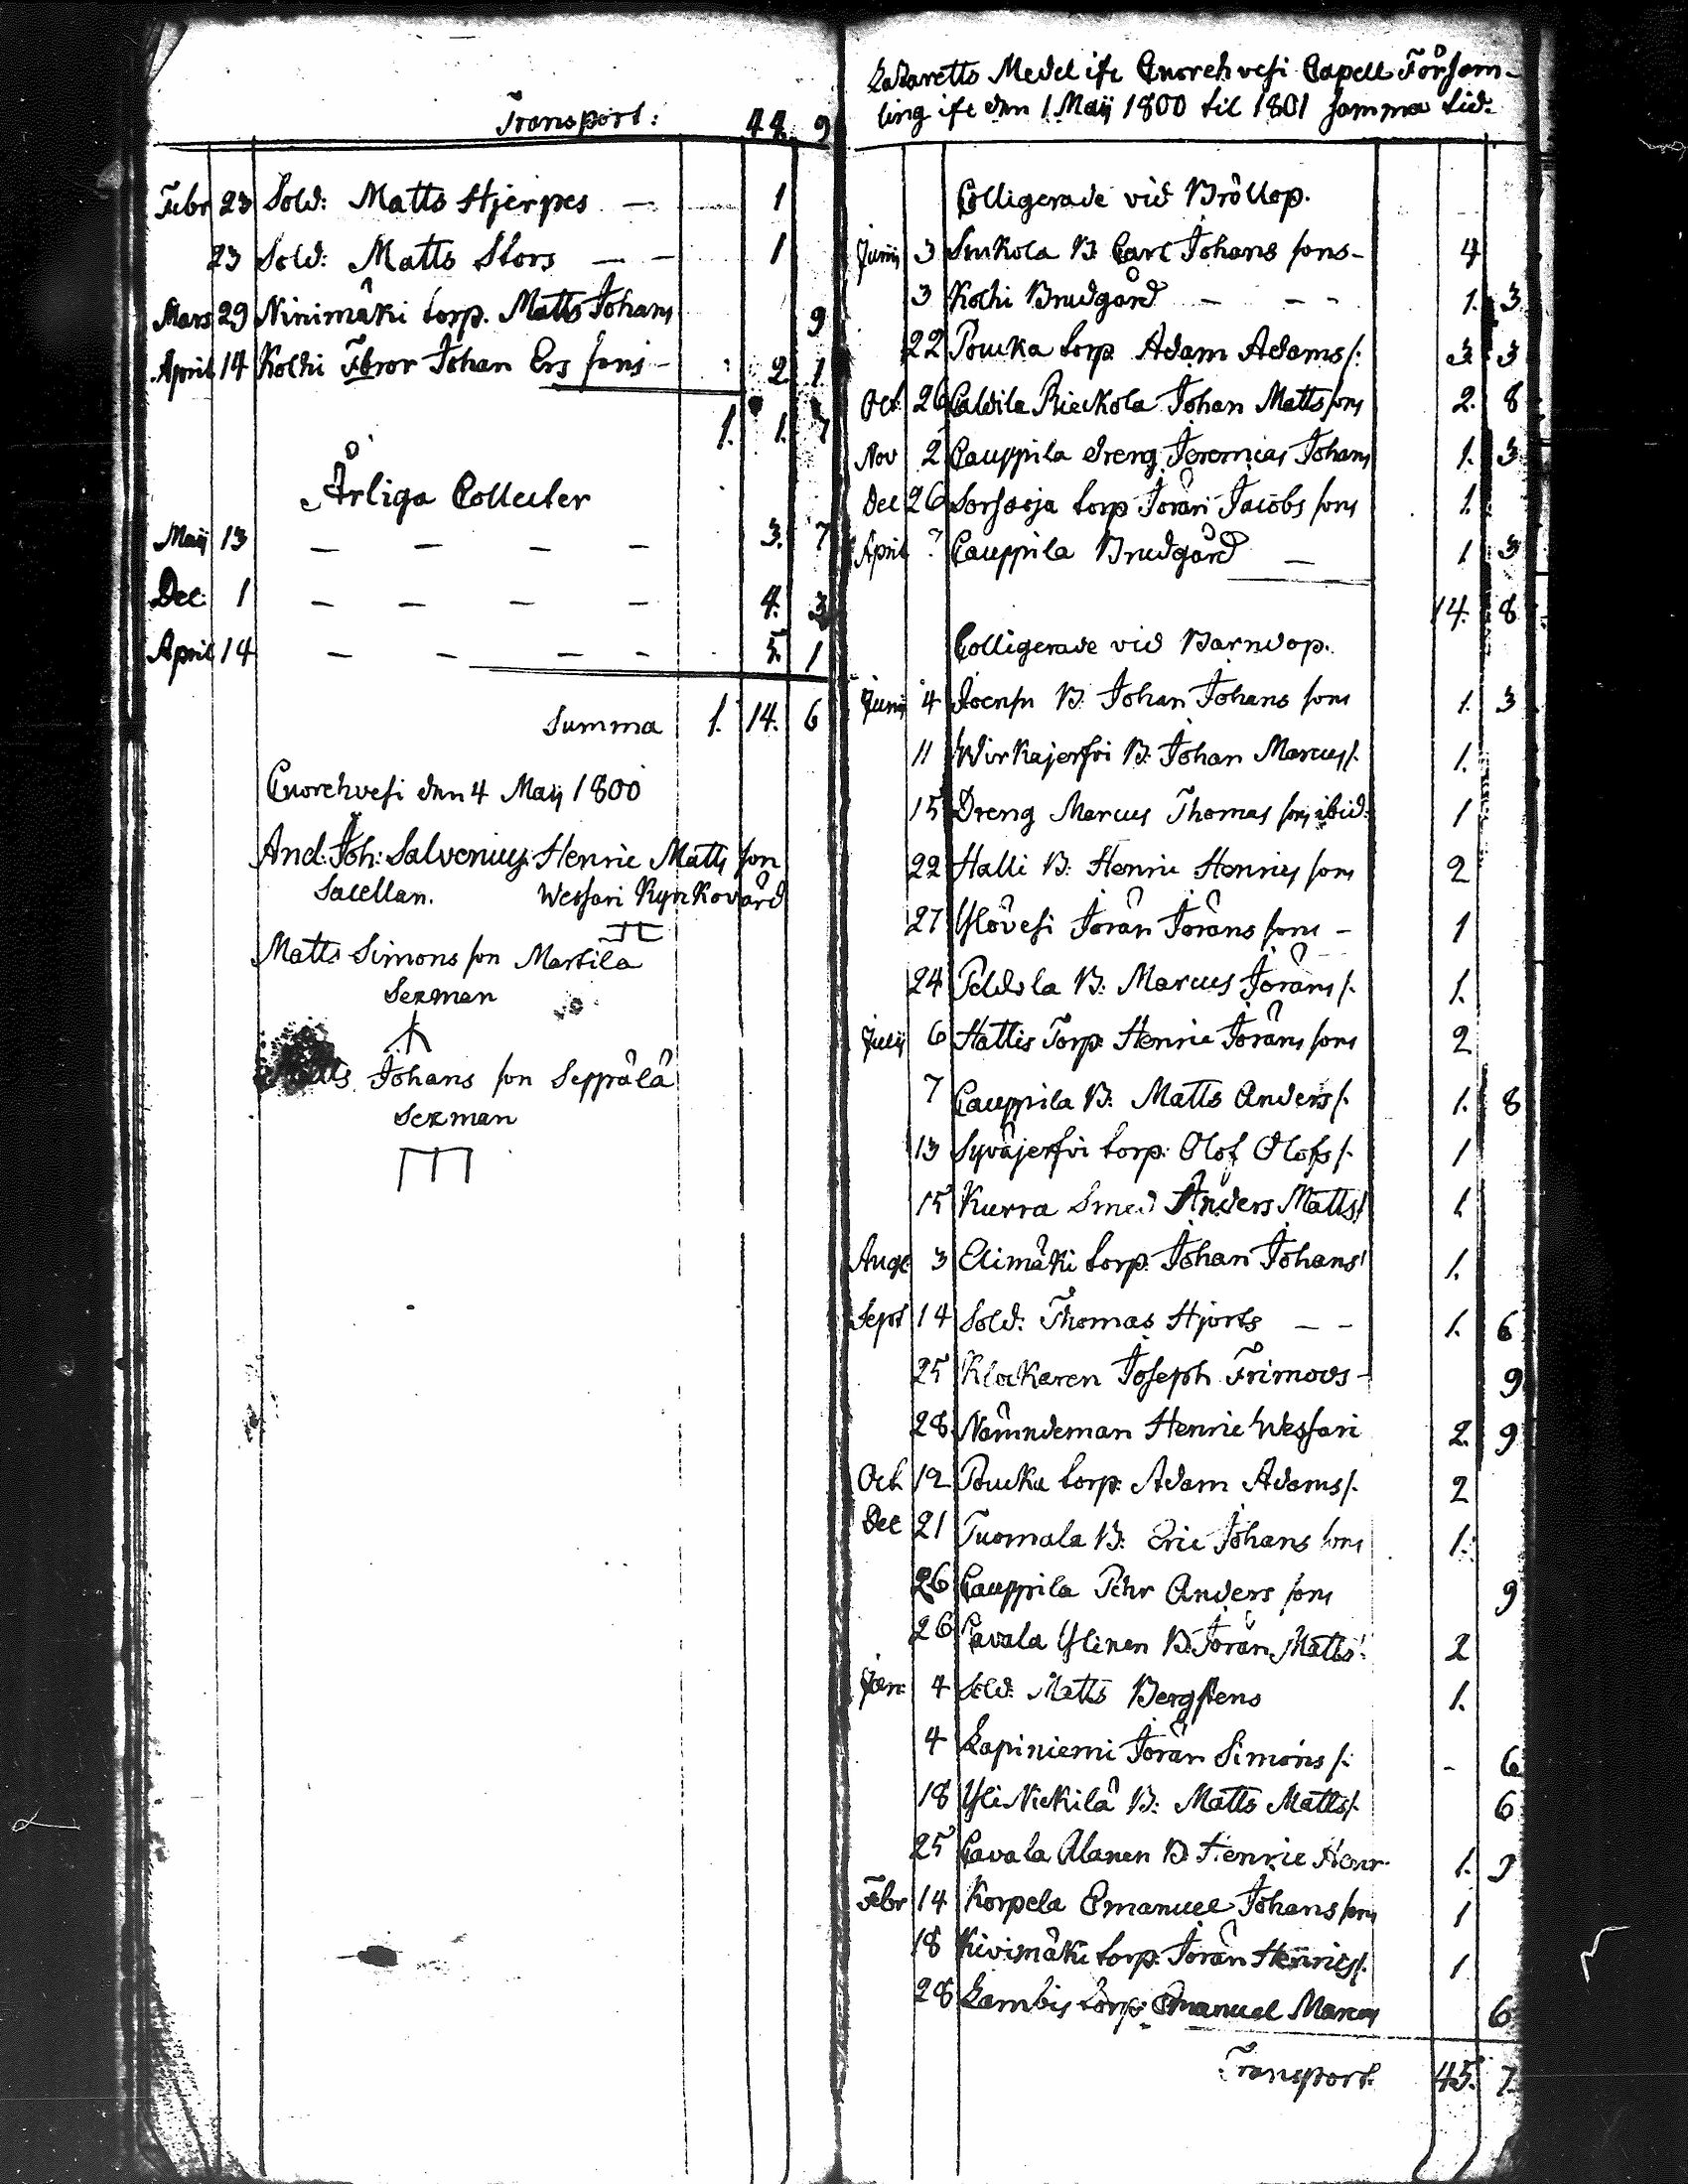 Transport: 44. 9
Febr 23 Sold: Matts Hjerpes — 1
23 Sold: Matts Stors — — 1
Mars 29 Ninimäki torp. Matts Johans 9
April 14 Kolhi Johan Ers sons - 2. 1
1. 1. 7
Årliga Collecter
Maij 13 — — — — 3. 7
Dec: 1 — — — — 4. 3
April 14 — — — — 5. 1
Summa 1. 14. 6
Cuorehvesi den 4 Maij 1800
And: Joh: Salvenius. Henric Matts son
Sacellan. Wessari Kyrkovärd
Matts Simons son Martila
Sexman
Matts Johans son Seppälä
Sexman
Lazaretts Medel ifr Cuorehvesi Capell Församling
ifr den 1 Maij 1800 til 1801 samma tid.
Colligerade vid Bröllop.
Junij 3 B. Carl Johans sons - 4
3 Kolhi Brudgård - - - 1. 3
22 Poucka torp. Adam Adams s: 3 3
Oct 26 Rieckola Johan Matts sons 2. 8
Nov 2 Cauppila dreng Jeremias Johans 1. 3
Dec 26 torp Jöran Jacobs sons 1.
April ? Cauppila Brudgård — 1 3
14. 8
Colligerade vid Barndop.
Junij 4 B. Johan Johans sons 1. 3
11 Wirkajerfvi B: Johan Marcus s. 1.
15 Dreng Marcus Thomas sons ibid: 1
22 Halli B. Henric Henrics sons 2
27 Ylövesi Jöran Jörans sons - 1
24 B: Marcus Jörans s. 1.
Julij 6 Hallis Torp. Henric Jörans sons 2
7 Cauppila B. Matts Anders s. 1. 8
13 Syväjerfvi torp: Olof Olofs s. 1
15 Kurra Smed Anders Matts s 1
Aug: 3 Elimäki torp. Johan Johans s 1.
Sept 14 Sold: Thomas Hjorts — — 1. 6
25 Klockaren Joseph Frimods - 9
28 Nämndeman Henric Wessari 2. 9
Oct 12 Poucka torp: Adam Adams s. 2
Dec 21 Tuomala B: Eric Johans sons 1.
26 Cauppila Pehr Anders sons 9
26 Cavala Ylinen B. Jöran Matts s: 2
Jan: 4 Sold. Matts Bergstens 1.
4 Lapiniemi Jöran Simons s: - 6
18 Yli Nickilä B: Matts Matts s. 6
25 Cavala Alanen B. Henric Henr. 1. 9
Febr 14 Korpela Emanuel Johans sons 1
18 Kivimäki torp. Jöran Henrics s. 1
28 Lambis torp: Emanuel Marcus 6
Transport. 45. 7.